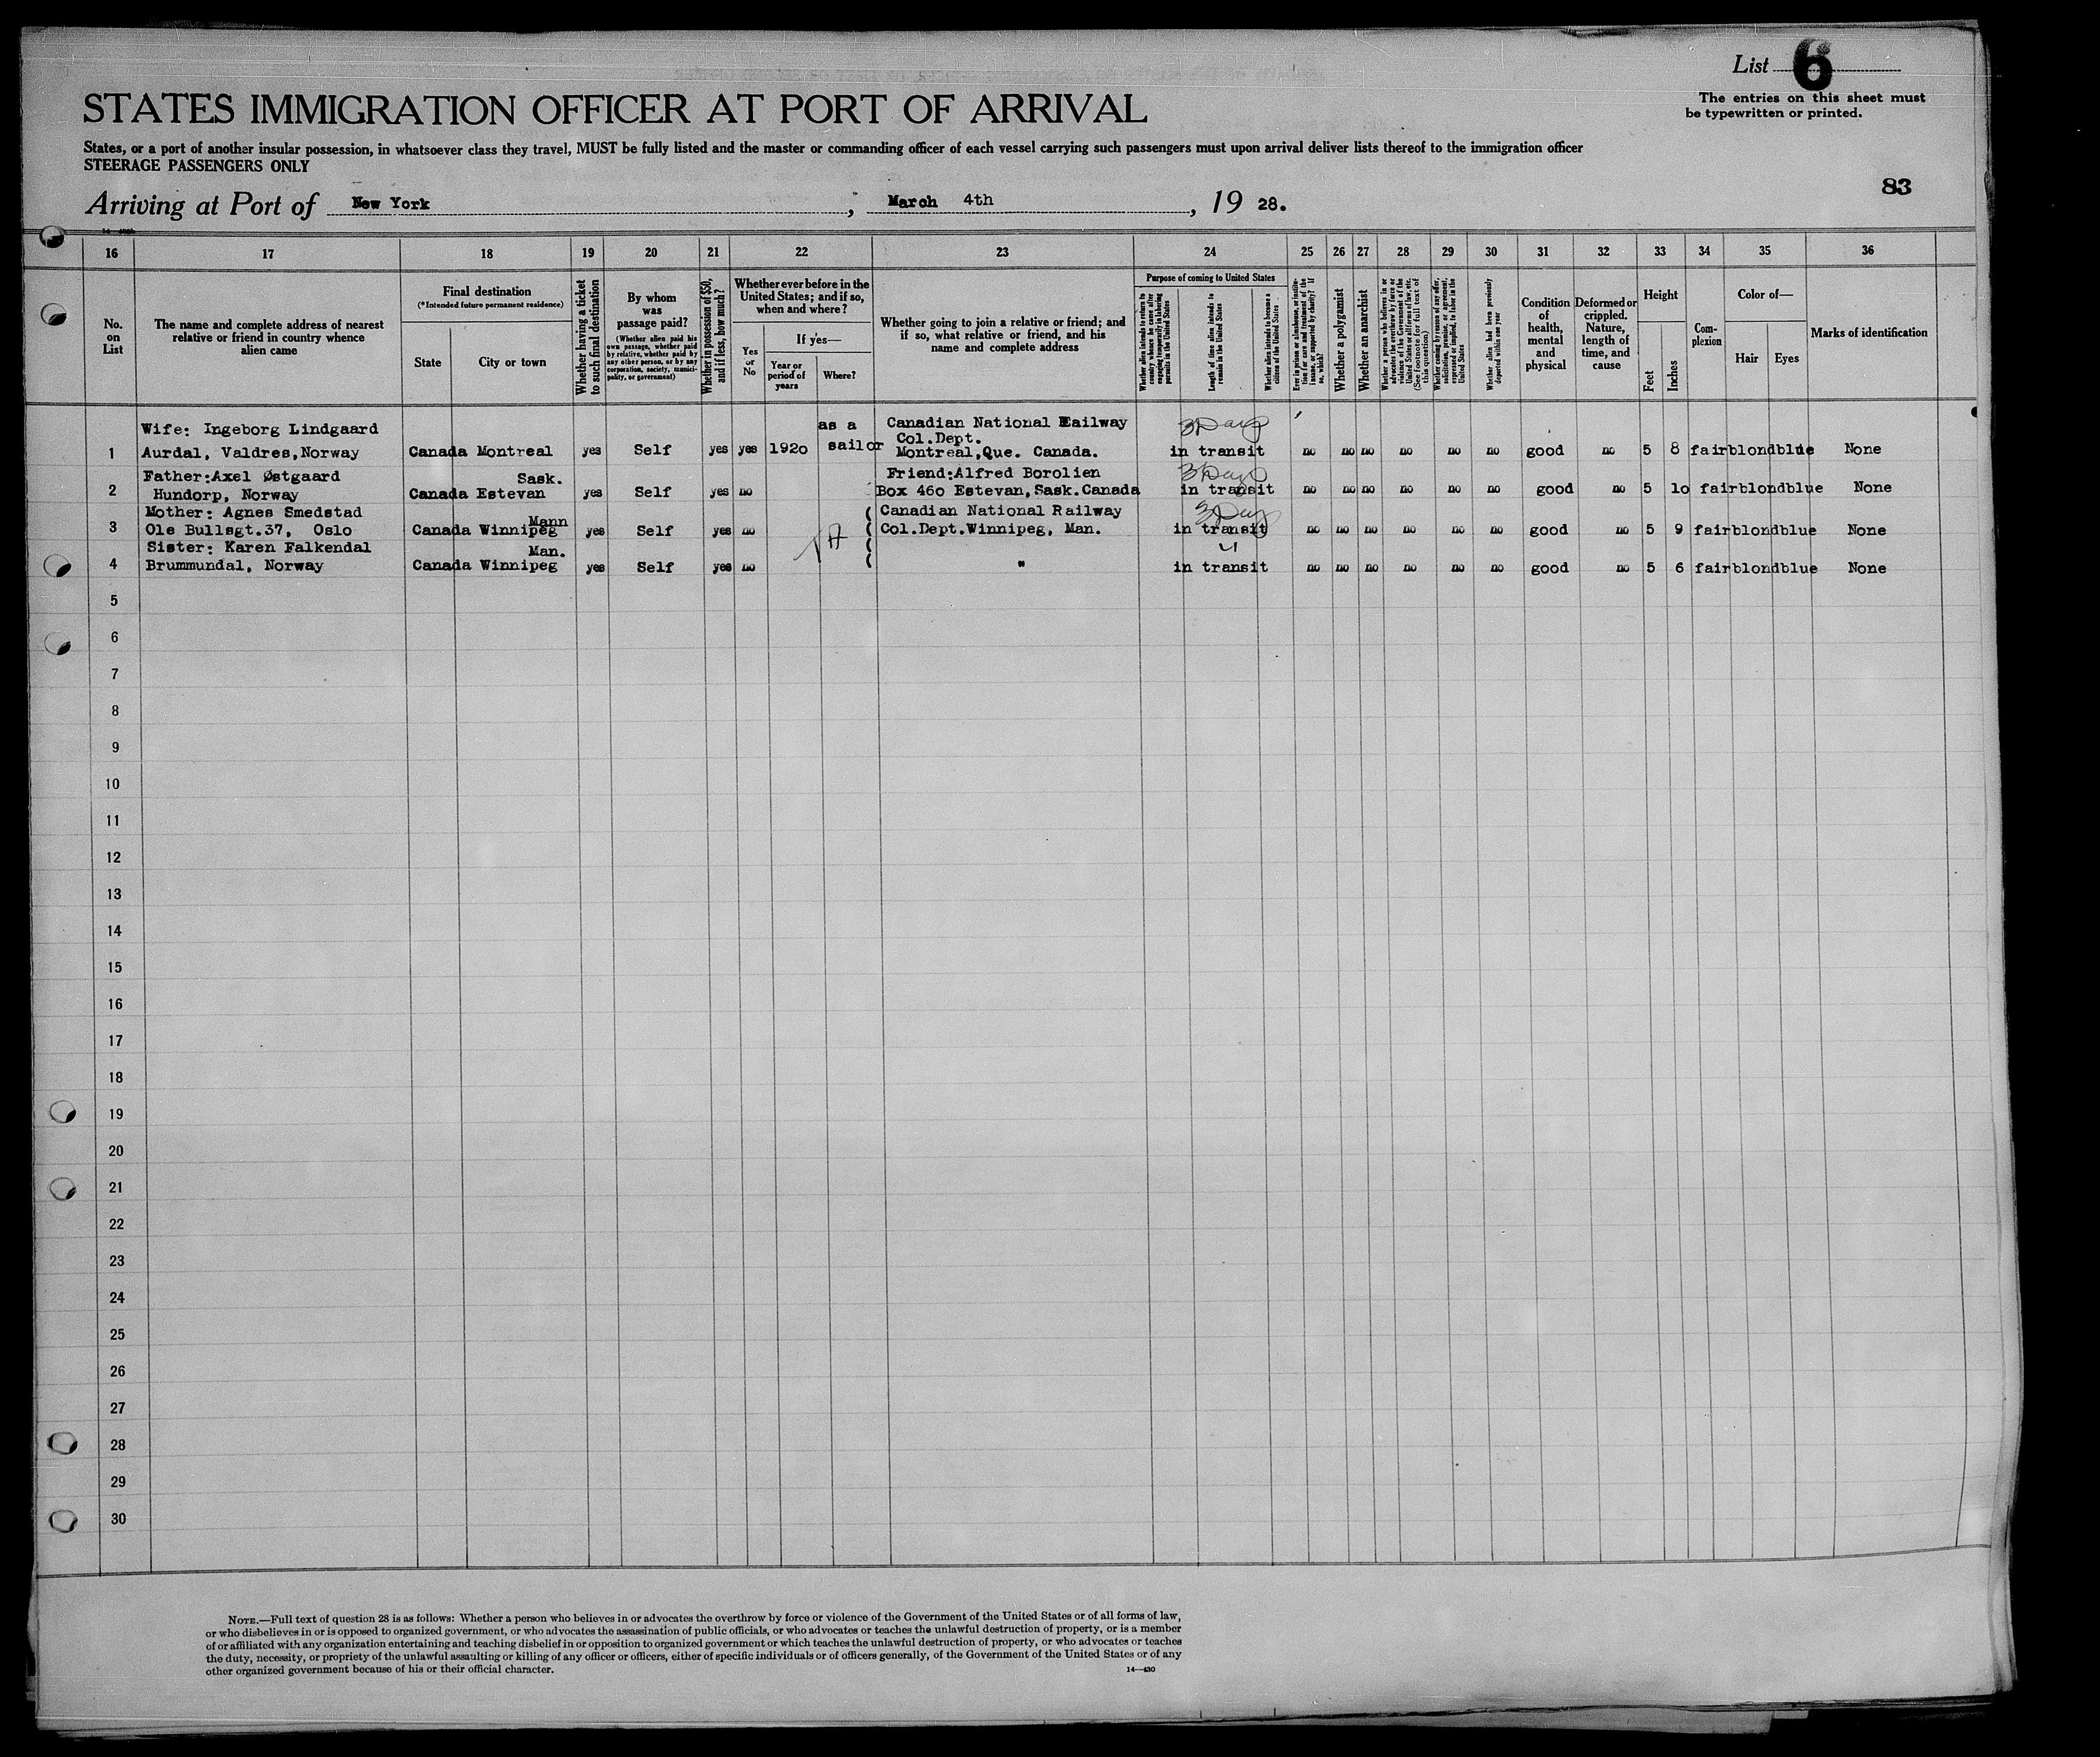 List 6
The entries on this sheet must
be typewritten or printed.
STATES IMMIGRATION OFFICER AT PORT OF ARRIVAL
States, or a port of another insular possession, in whatsoever class they travel, MUST be fully listed and the master or commanding officer of each vessel carrying such passengers must upon arrival deliver lists thereof to the immigration officer
STEERAGE PASSENGERS ONLY
83
Arriving at Port of New York, March 4th, 19 28.
16 17 18 19 20 21 22 23 24 25 26 27 28 29 30 31 32 33 34 35 36
No.
on
List
The name and complete address of nearest
relative or friend in country whence
alien came
Final destination
(*Intended future permanent residence)
State
City or town
Whether having a ticket
to such final destination
By whom
was
passage paid?
(Whether alien paid his
own passage, whether paid
by relative, whether paid by
any other person, or by any
corporation, society, munici-
pality, or government)
Whether in possession of $50,
and if less, how much?
Whether ever before in the
United States; and if so,
when and where?
Yes
or
No
If yes—
Year or
period of
years
Where?
Whether going to join a relative or friend; and
if so, what relative or friend, and his
name and complete address
Purpose of coming to United States
Whether alien intends to return to
country whence he came after
engaging temporarily in laboring
pursuits in the United States
Length of time alien intends to
remain in the United States
Whether alien intends to become a
citizen of the United States
Ever in prison or almshouse, or institu-
tion for care and treatment of the
insane, or supported by charity? If
so, which?
Whether a polygamist
Whether an anarchist
Whether a person who believes in or
advocates the overthrow by force or
violence of the Government of the
United States or all forms of law, etc.
(See footnote for full text of
this question)
Whether coming by reason of any offer,
solicitation, promise, or agreement,
expressed or implied, to labor in the
United States
Whether alien had been previously
deported within one year
Condition
of
health,
mental
and
physical
Deformed or
crippled.
Nature,
length of
time, and
cause
Height
Feet
Inches
Com-
plexion
Color of—
Hair
Eyes
Marks of identification
Wife: Ingeborg Lindgaard as a Canadian National Railway 3 Days
Col.Dept.
1 Aurdal, Valdres,Norway Canada Montreal yes Self yes yes 1920 sailor Montreal,Que. Canada. in transit no no no no no no good no 5 8 fair blond blue None
Father:Axel Østgaard Sask. Friend:Alfred Borolien 3 Days
2 Hundorp, Norway Canada Estevan yes Self yes no Box 460 Estevan,Sask.Canada in transit no no no no no no good no 5 10 fair blond blue None
Mother: Agnes Smedstad Mann Canadian National Railway 3 Days
3 Ole Bullsgt.37, Oslo Canada Winnipeg yes Self yes no Col.Dept.Winnipeg, Man. in transit no no no no no no good no 5 9 fair blond blue None
Sister: Karen Falkendal Man.
4 Brummundal, Norway Canada Winnipeg yes Self yes no " in transit no no no no no no good no 5 6 fair blond blue None
5
6
7
8
9
10
11
12
13
14
15
16
17
18
19
20
21
22
23
24
25
26
27
28
29
30
NOTE.—Full text of question 28 is as follows: Whether a person who believes in or advocates the overthrow by force or violence of the Government of the United States or of all forms of law,
or who disbelieves in or is opposed to organized government, or who advocates the assassination of public officials, or who advocates or teaches the unlawful destruction of property, or is a member
of or affiliated with any organization entertaining and teaching disbelief in or opposition to organized government or which teaches the unlawful destruction of property, or who advocates or teaches
the duty, necessity, or propriety of the unlawful assaulting or killing of any officer or officers, either of specific individuals or of officers generally, of the Government of the United States or of any
other organized government because of his or their official character.
14—430